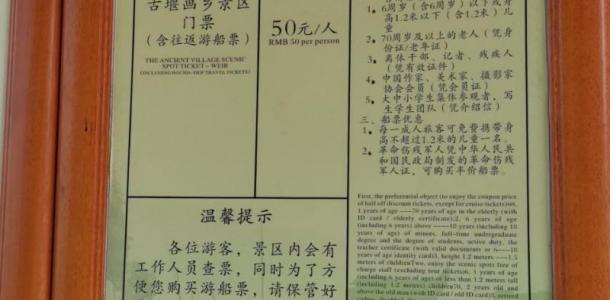 古堰画乡景区
门票
(含往返游船票)
THE ANCIENT VILLAGE SCENIC
SPOT TICKET – WEIR
(INCLUDING ROUND-TRIP TRAVEL TICKETS)
50元/人
RMB 50 per person
温馨提示
各位游客，景区内会有
工作人员查票，同时为了方
便您购买游船票，请保管好
1、6周岁（含6周岁）以下或身
高1.2米以下（含1.2米）儿
童
2、70周岁及以上的老人（凭身
份证/老年证）
3、离休干部、记者、残疾人
（凭有效证件）
4、中国作家、美术家、摄影家
协会会员（凭会员证）
5、大中小学生集体参观者，写
生学生团队（凭介绍信）
三、船票优惠
1、每一成人旅客可免费携带身
高不超过1.2米的儿童一名。
2、革命伤残军人凭中华人民共
和国民政局制发的革命伤残
军人证，可购买半价船票。
First, the preferential object (to enjoy the coupon price
of half off discount tickets, except for cruise tickets)60,
1 years of age ----70 years of age in the elderly (with
ID card / elderly certificate);2, 6 years of age
(including 6 years) above -----18 years (including 18
years of age) of minors, full-time undergraduate
degree and the degree of students, active duty, the
teacher certificate (with valid documents or 6----18
years of age identity card), height 1.2 meters ---1.5
meters of childrenTwo, enjoy the scenic spots free of
charge staff (excluding tour tickets)6, 1 years of age
(including 6 years of age) or less than 1.2 meters tall
(including 1.2 meters) children70, 2 years old and
above the old man (with ID card / old ID card)3, retired